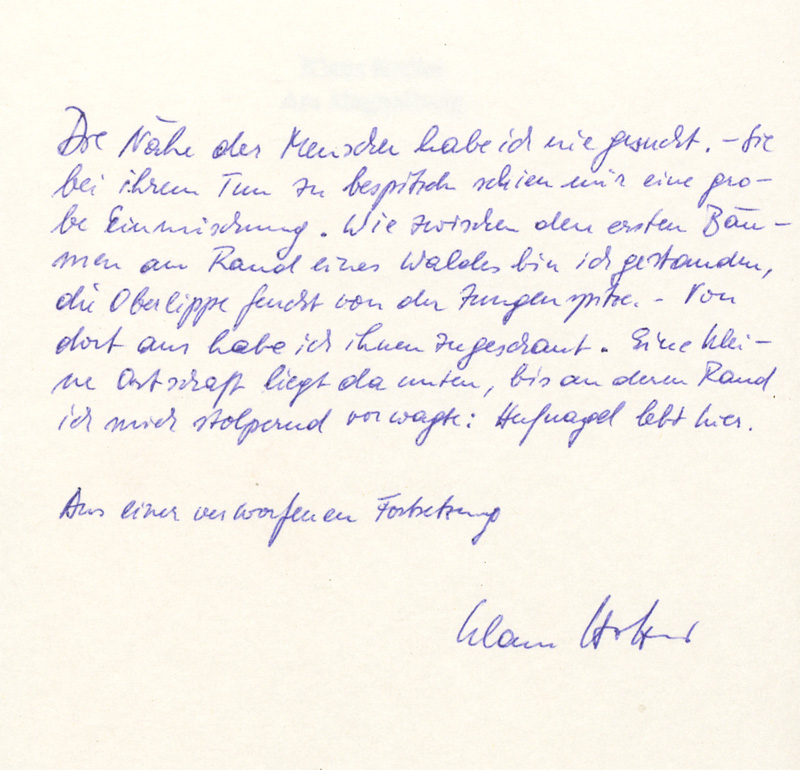 Die Nähe der Menschen habe ich nie gesucht. – Sie
bei ihrem Tun zu bespitzeln schien mir eine gro-
be Einmischung. Wie zwischen den ersten Bäu-
men am Rand eines Waldes bin ich gestanden,
die Oberlippe feucht von der Zungenspitze. – Von
dort aus habe ich ihnen zugeschaut. Eine klei-
ne Ortschaft liegt da unten, bis an deren Rand
ich mich stolpernd vorwagte: Hufnagel lebt hier.
Aus einer verworfenen Fortsetzung
Klaus